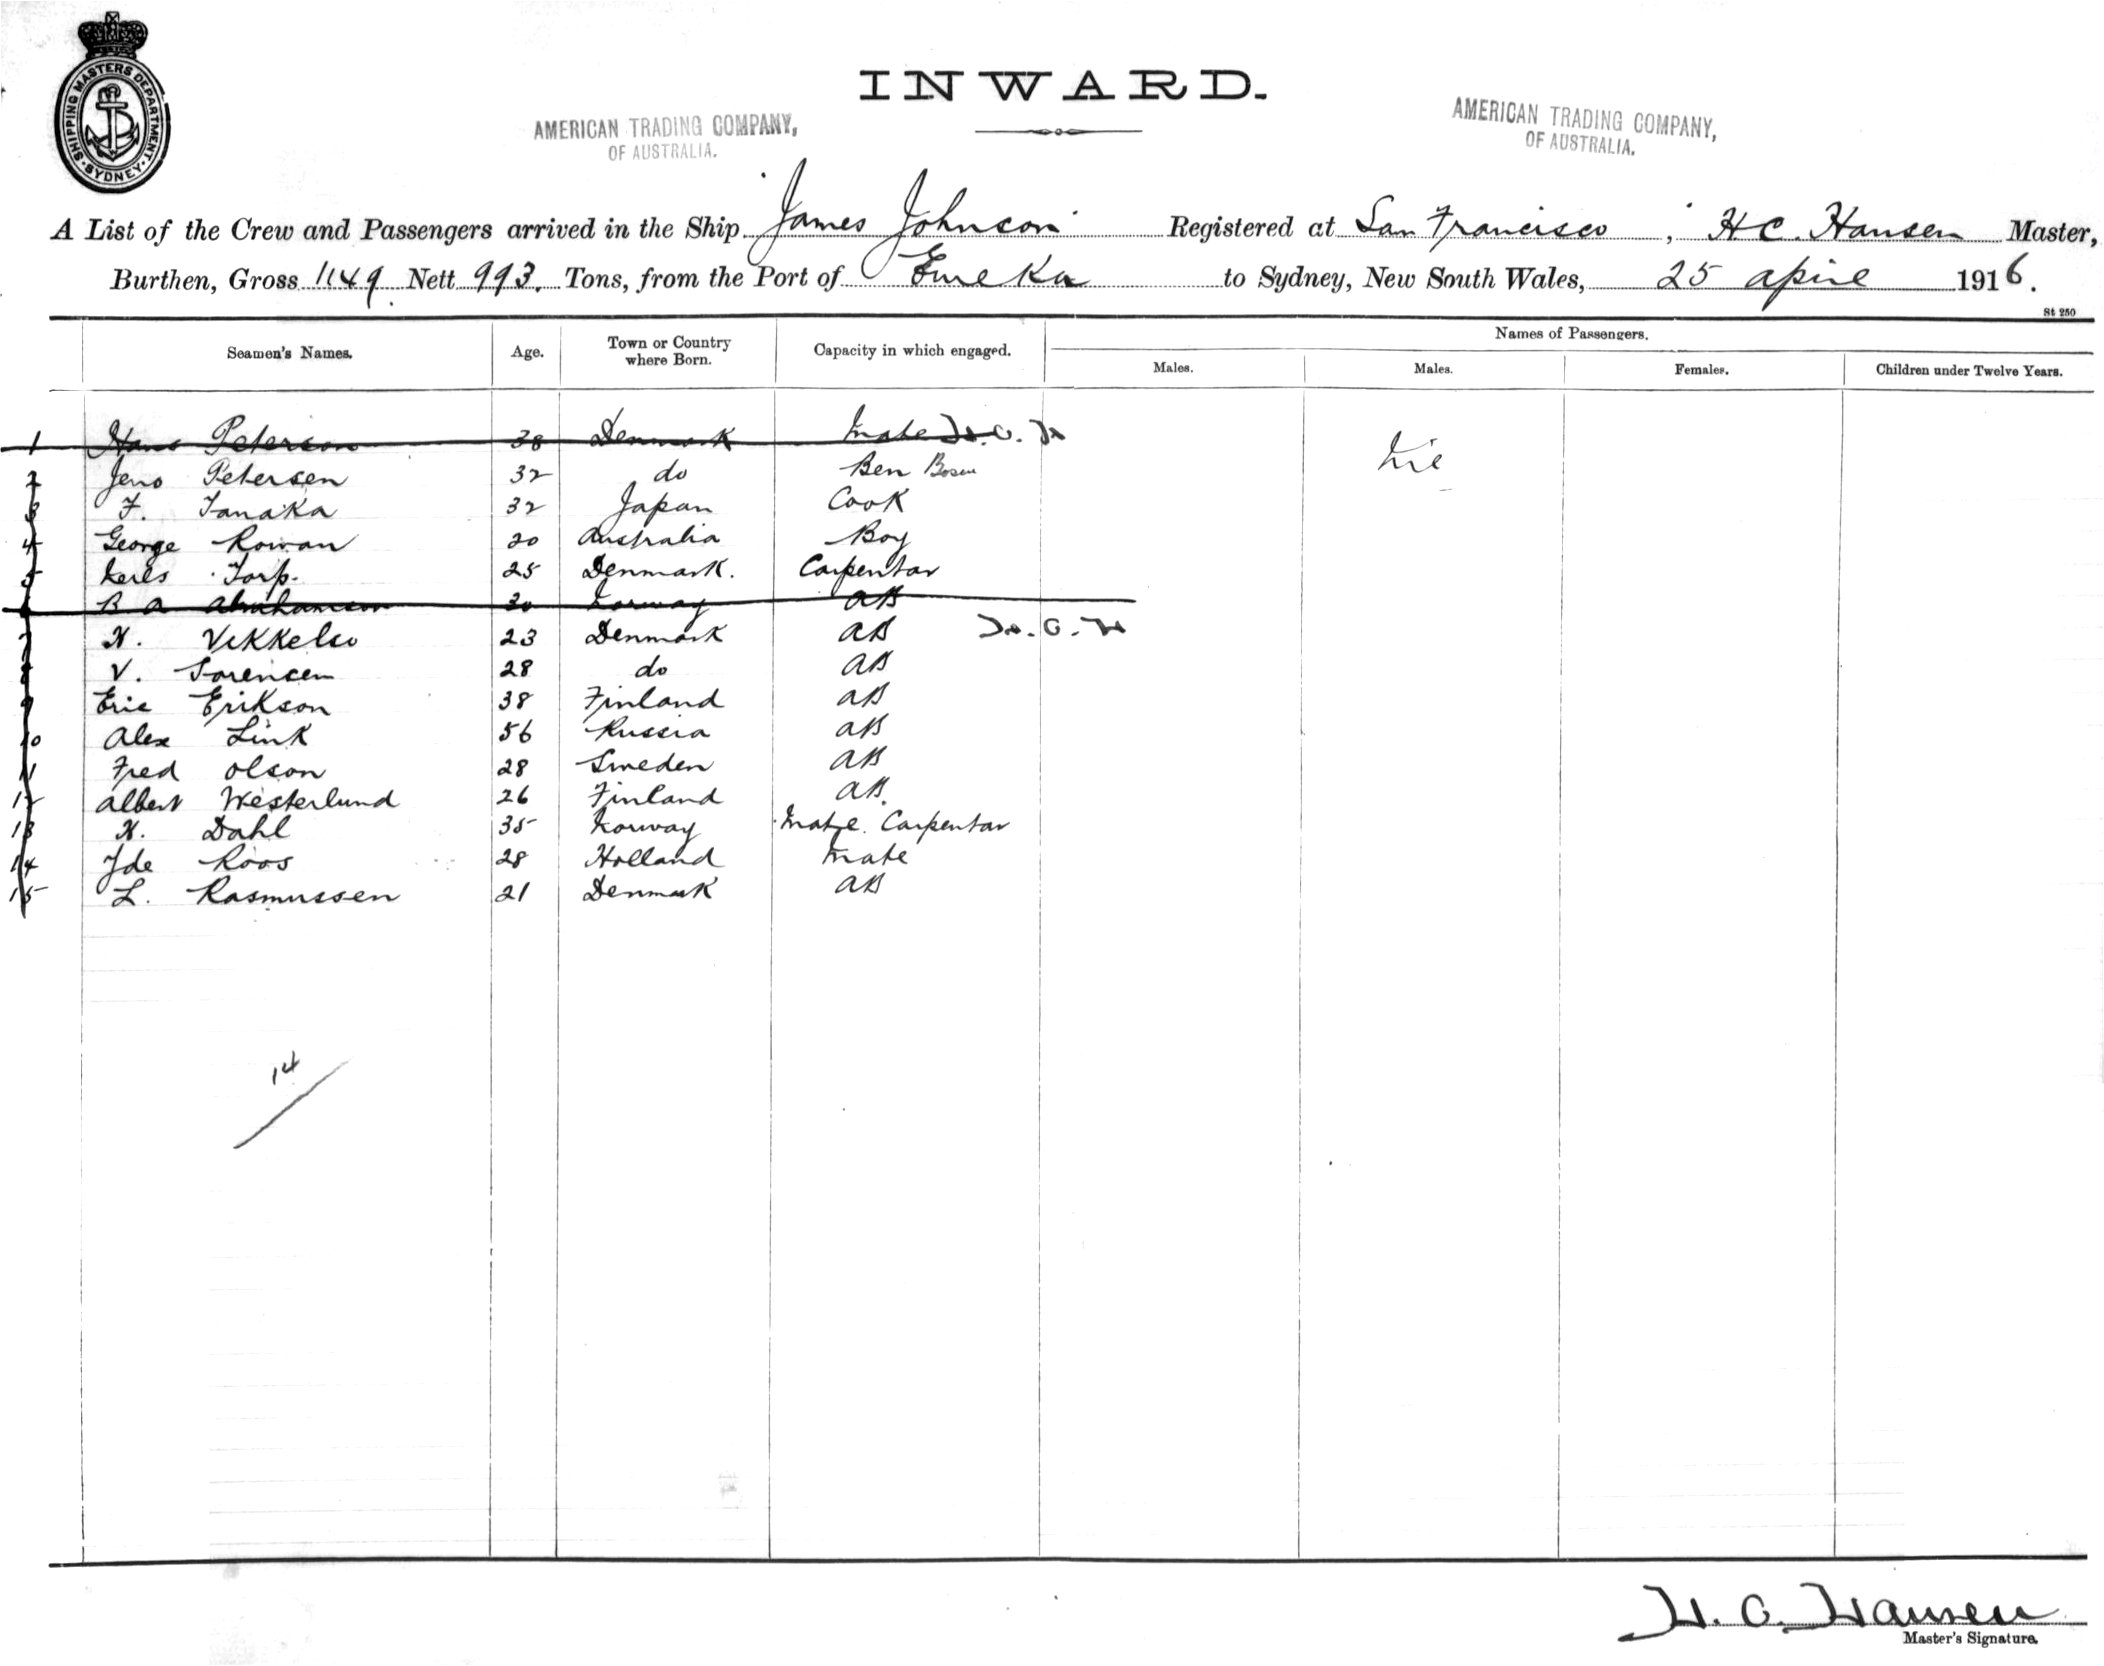 SHIPPING MASTERS DEPARTMENT
SYDNEY
INWARD.
AMERICAN TRADING COMPANY,
OF AUSTRALIA.
AMERICAN TRADING COMPANY,
OF AUSTRALIA.
A List of the Crew and Passengers arrived in the Ship James Johnson Registered at San Francisco, H C. Hansen Master,
Burthen, Gross 1149 Nett 993. Tons, from the Port of Eureka to Sydney, New South Wales, 25 April 1916.
St 250
Seamen's Names. Age. Town or Country where Born. Capacity in which engaged. Names of Passengers.
Males. Males. Females. Children under Twelve Years.
1 Hans Peterson 38 Denmark Mate H.C.H
Nil
2 Jens Petersen 32 do Ben Bosun
3 F. Tanaka 32 Japan Cook
4 George Rowan 20 Australia Boy
5 Neils Torp. 25 Denmark. Carpentar
6 B A Abrahamson 30 Norway AB
7 N. Vekkelso 23 Denmark AB H.C.H
8 V. Sorensen 28 do AB
9 Eric Erikson 38 Finland AB
10 Alex Link 56 Russia AB
11 Fred Olson 28 Sweden AB
12 Albert Westerlund 26 Finland AB.
13 N. Dahl 35 Norway Mate. Carpentar
14 Roos 28 Holland Mate
15 L. Rasmussen 21 Denmark AB
14
H. C. Hansen
Master's Signature.